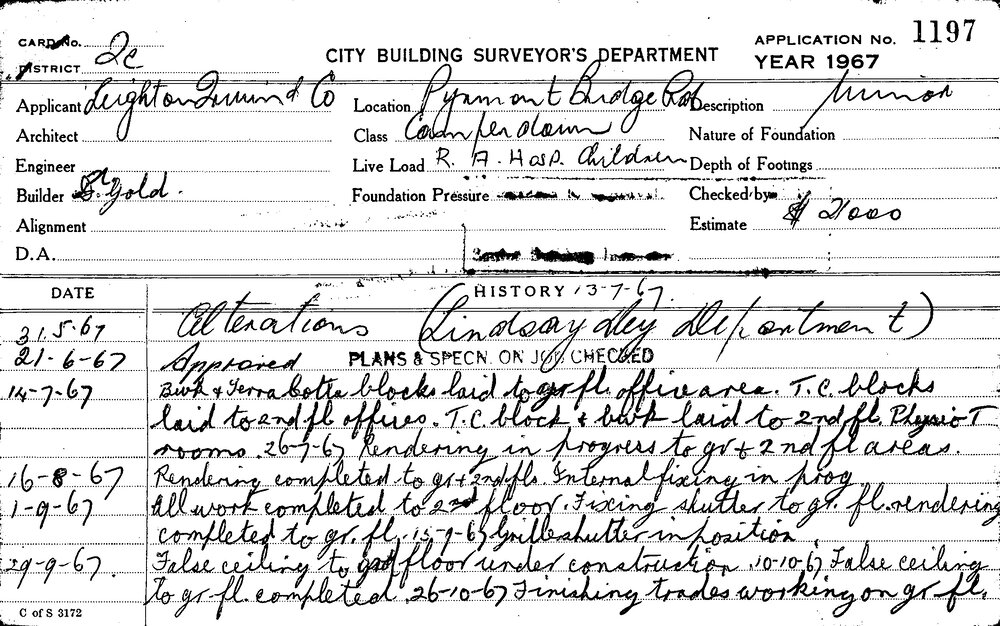 CARD No. 2c
DISTRICT
CITY BUILDING SURVEYOR'S DEPARTMENT
APPLICATION No. 1197
YEAR 1967
Applicant Leighton Irwin & Co Location Pyrmont Bridge Rd Description Minor
Architect Class Camperdown Nature of Foundation
Engineer Live Load R. A. Hosp. Children Depth of Footings
Builder S. Gold. Foundation Pressure Checked by
Alignment Estimate $ 2000
D.A.
DATE HISTORY 13-7-67.
31.5.67 Alterations (Lindsay Dey Department)
21-6-67 Approved PLANS & SPECN. ON JOB CHECKED
14-7-67 Bwk & Terra Cotta blocks laid to gr fl. office area. T.C. blocks
laid to 2nd fl offices. T.C. block & bwk laid to 2nd fl. Physio T
rooms. 26-7-67 Rendering in progress to gr & 2nd fl areas.
16-8-67 Rendering completed to gr & 2nd fls. Internal fixing in prog
1-9-67 All work completed to 2nd floor. Fixing shutter to gr. fl. rendering
completed to gr. fl. 15-9-67 Grille shutter in position.
29-9-67. False ceiling to floor under construction. 10-10-67 False ceiling
to gr fl. completed. 26-10-67 Finishing trades working on gr fl.
C of S 3172